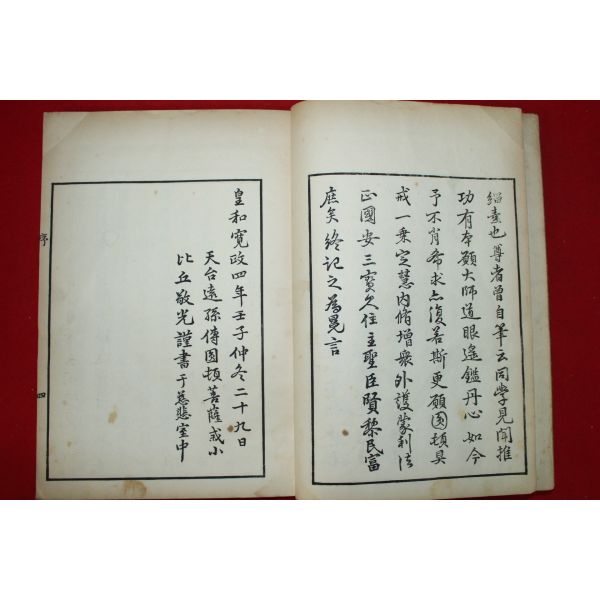 緇素也尊者曾自筆云同學見聞推
功有本願大師道眼遙鑑丹心如今
予不肖希求亦復若斯更願圓頓具
戒一乗定慧内脩增衆外護蒙利法
正國安三寳久住主聖臣賢黎民富
庶矣終記之為冕言
皇和寛政四年壬子仲冬二十九日
天台遠孫傳圓頓菩薩戒小
比丘敬光謹書于慈悲室中
序
四